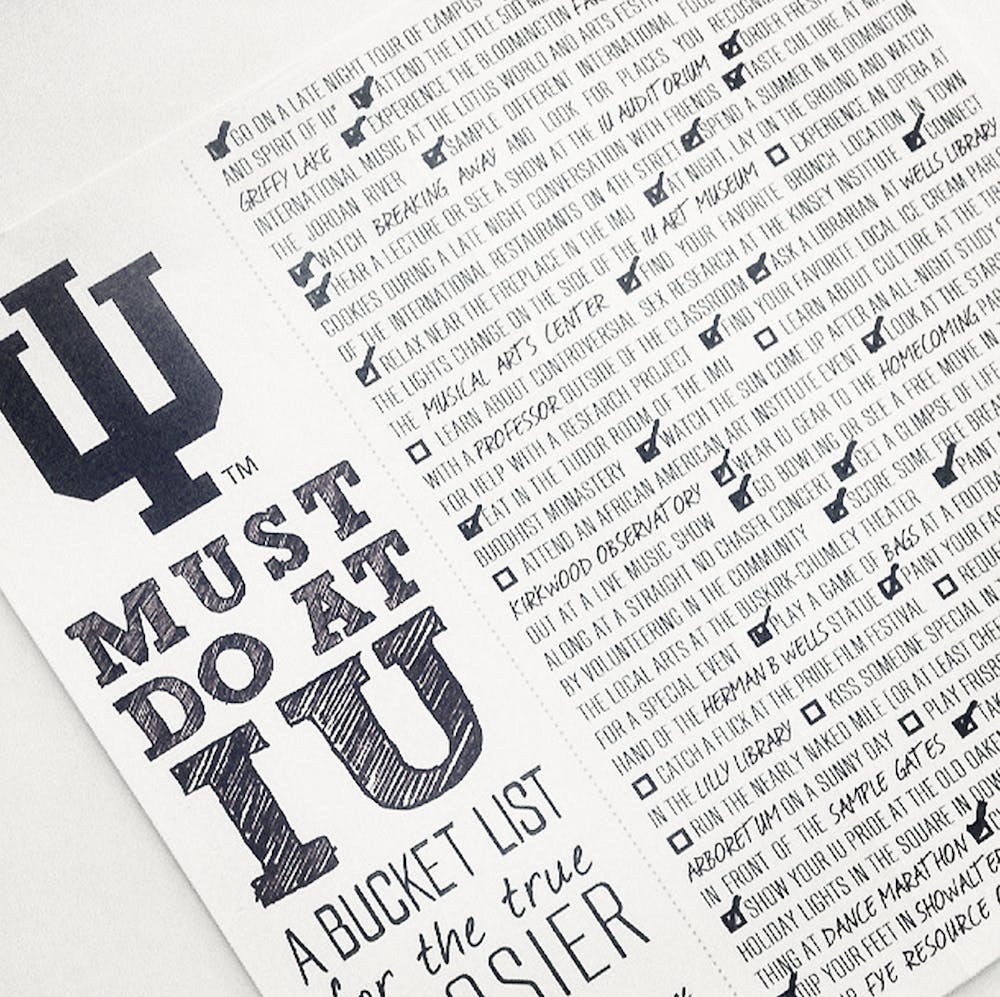 IU™
MUST
DO AT
IU
A BUCKET LIST
for the true
GO ON A LATE NIGHT TOUR OF CAMPUS
AND SPIRIT OF IU" ATTEND THE LITTLE 500
GRIFFY LAKE EXPERIENCE THE BLOOMINGTON
INTERNATIONAL MUSIC AT THE LOTUS WORLD AND ARTS
THE JORDAN RIVER SAMPLE DIFFERENT INTERNATIONAL
WATCH BREAKING AWAY AND LOOK FOR PLACES YOU
HEAR A LECTURE OR SEE A SHOW AT THE IU AUDITORIUM ORDER
COOKIES DURING A LATE NIGHT CONVERSATION WITH FRIENDS TASTE CULTURE AT
OF THE INTERNATIONAL RESTAURANTS ON 4TH STREET SPEND A SUMMER IN BLOOMINGTON
RELAX NEAR THE FIREPLACE IN THE IMU AT NIGHT, LAY ON THE GROUND AND WATCH
THE LIGHTS CHANGE ON THE SIDE OF THE IU ART MUSEUM EXPERIENCE AN OPERA AT
THE MUSICAL ARTS CENTER FIND YOUR FAVORITE BRUNCH LOCATION IN TOWN
LEARN ABOUT CONTROVERSIAL SEX RESEARCH AT THE KINSEY INSTITUTE CONNECT
WITH A PROFESSOR OUTSIDE OF THE CLASSROOM ASK A LIBRARIAN AT WELLS LIBRARY
FOR HELP WITH A RESEARCH PROJECT FIND YOUR FAVORITE LOCAL ICE CREAM
EAT IN THE TUDOR ROOM OF THE IMU LEARN ABOUT CULTURE AT THE
BUDDHIST MONASTERY WATCH THE SUN COME UP AFTER AN ALL-NIGHT STUDY
ATTEND AN AFRICAN AMERICAN ART INSTITUTE EVENT LOOK AT THE STARS
KIRKWOOD OBSERVATORY WEAR IU GEAR TO THE HOMECOMING
OUT AT A LIVE MUSIC SHOW GO BOWLING OR SEE A FREE MOVIE IN
ALONG AT A STRAIGHT NO CHASER CONCERT GET A GLIMPSE OF LIFE
BY VOLUNTEERING IN THE COMMUNITY SCORE SOME FREE
THE LOCAL ARTS AT THE BUSKIRK-CHUMLEY THEATER PAINT
FOR A SPECIAL EVENT PLAY A GAME OF BAGS AT A
HAND OF THE HERMAN B WELLS STATUE PAINT YOUR
CATCH A FLICK AT THE PRIDE FILM FESTIVAL
IN THE LILLY LIBRARY KISS SOMEONE SPECIAL IN
RUN THE NEARLY NAKED MILE (OR AT LEAST
ARBORETUM ON A SUNNY DAY PLAY
IN FRONT OF THE SAMPLE GATES
SHOW YOUR IU PRIDE AT THE OLD
HOLIDAY LIGHTS IN THE SQUARE IN
THING AT DANCE MARATHON
DIP YOUR FEET IN
FYE RESOURCE